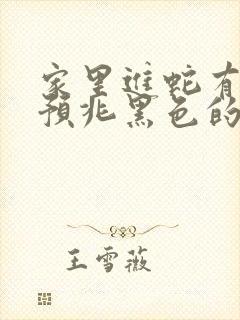 家里进蛇有
预兆黑色的
王雪薇